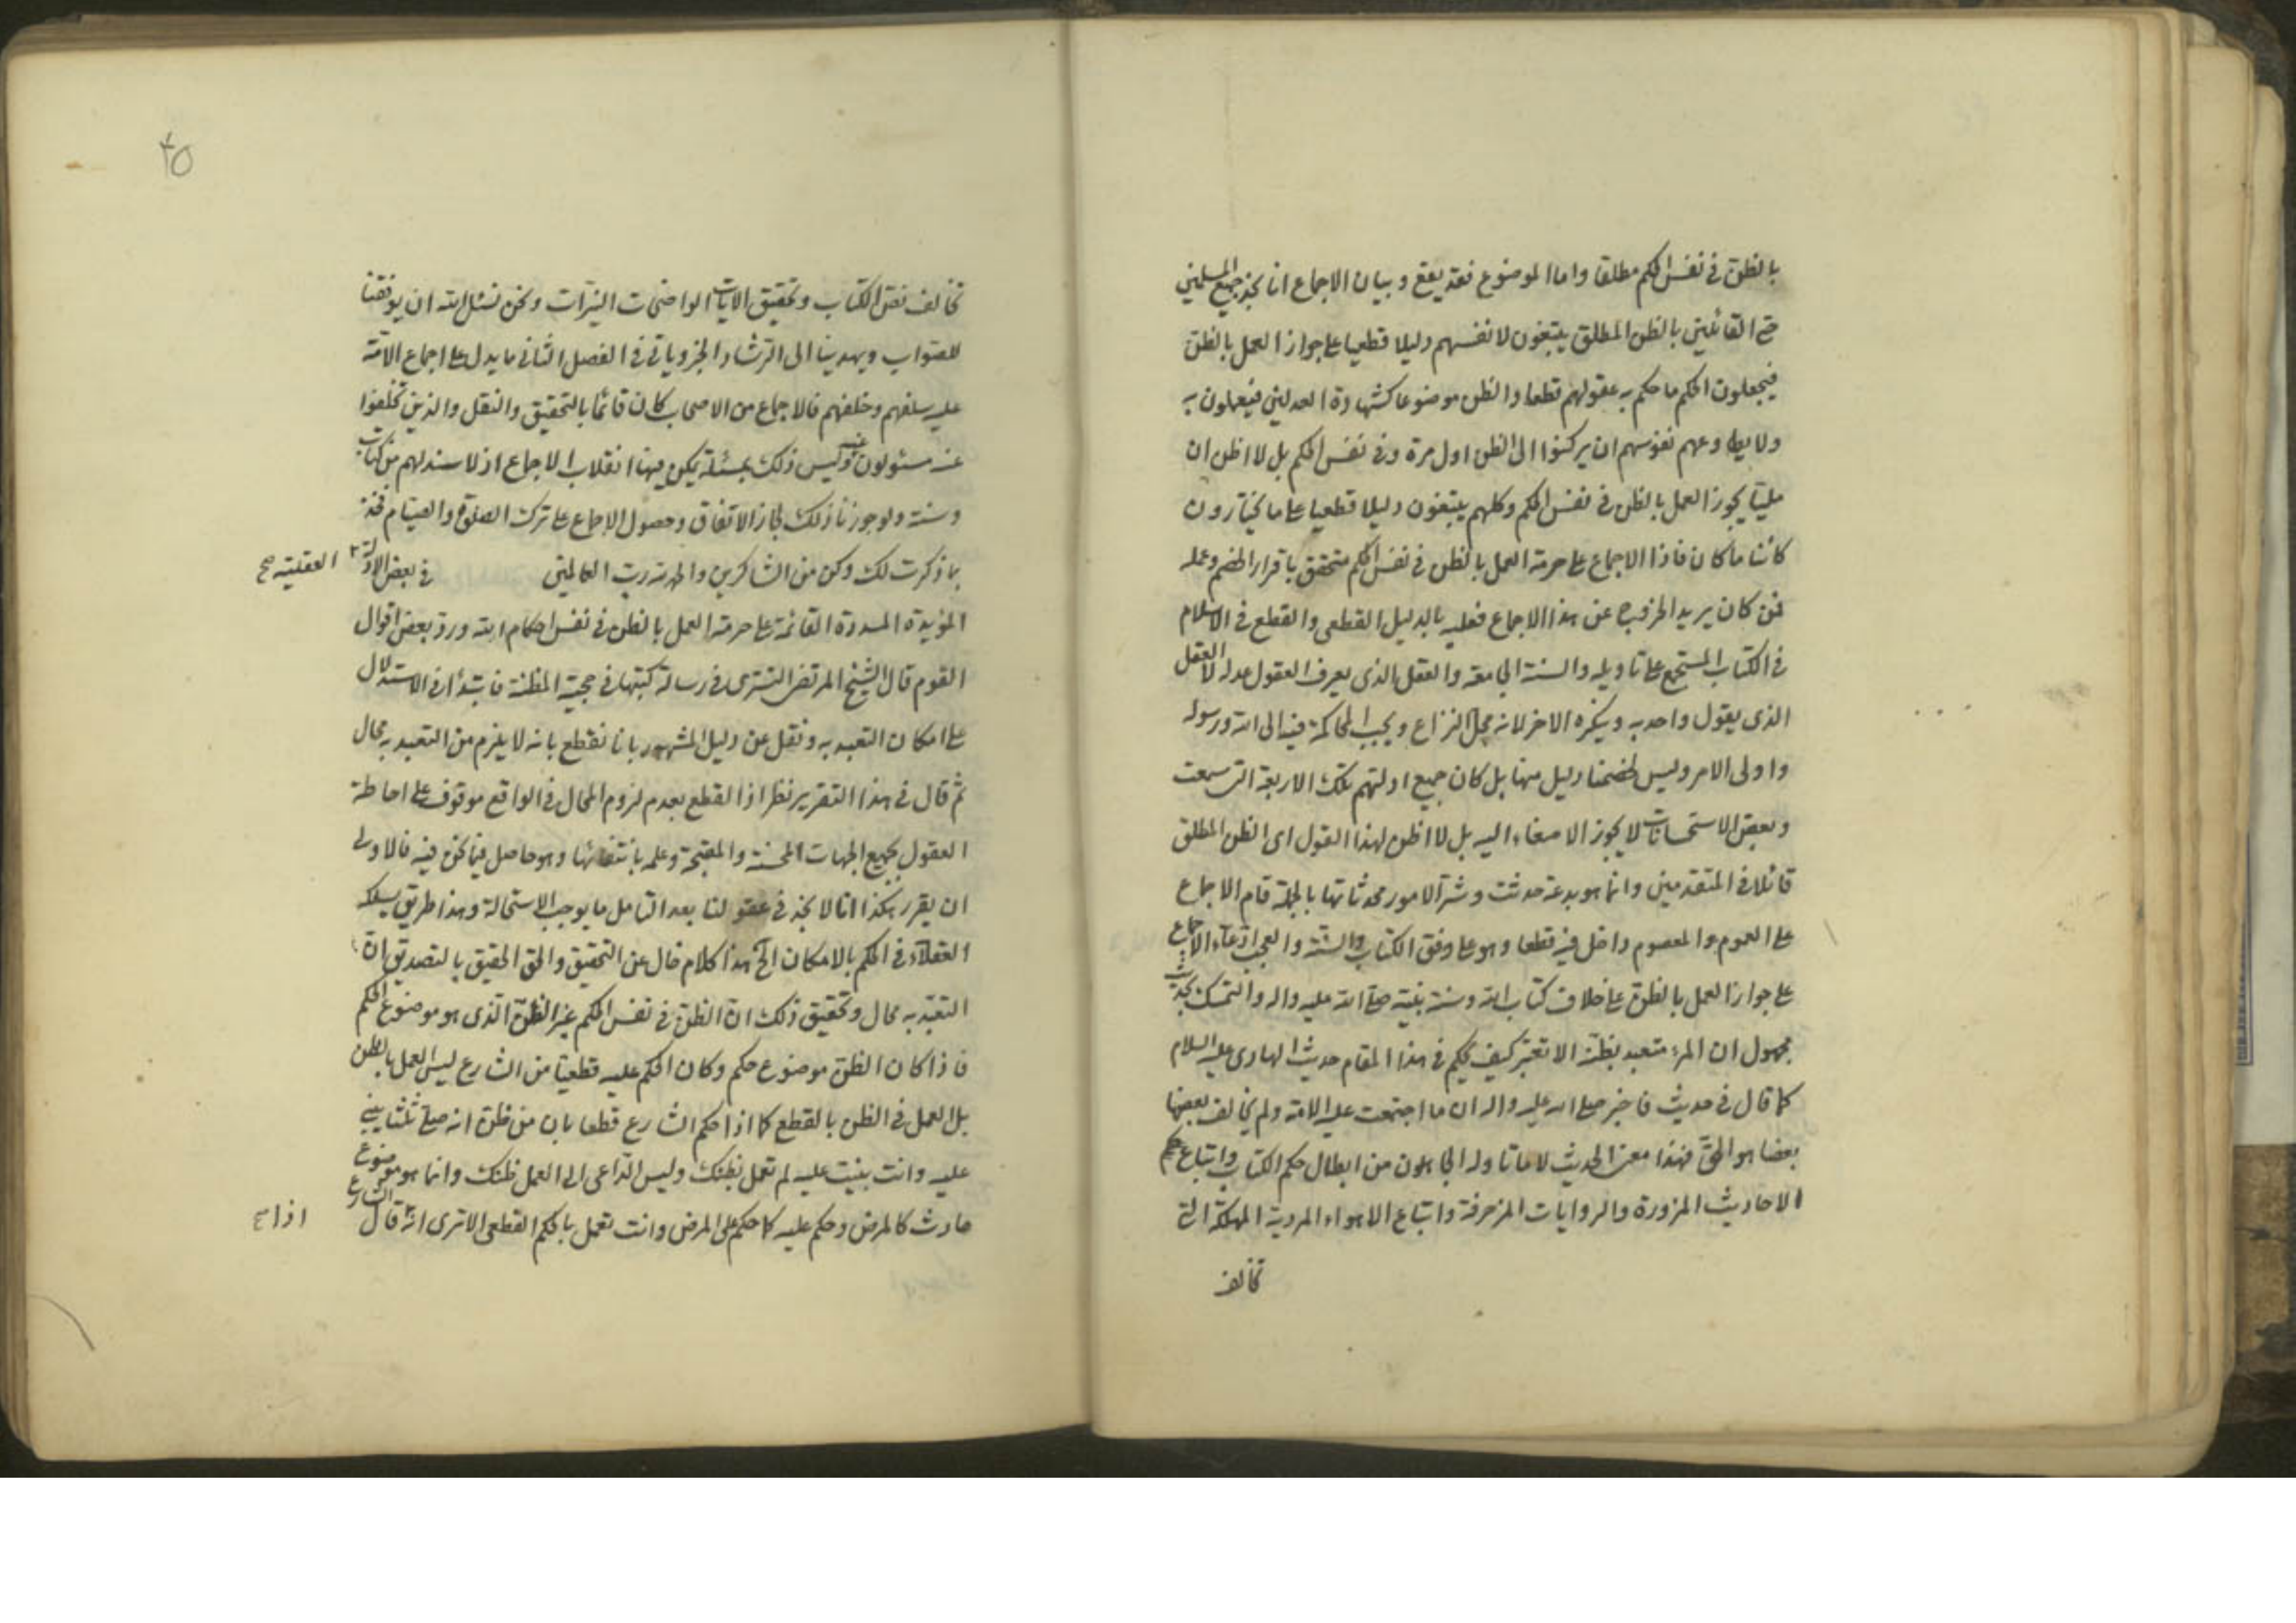 بالظن في نفس الحكم مطلقا واما الموضوع فقد يقع وبيان الاجماع انا نجد جميع المسلمين
حتى القائلين بالظن المطلق يبتغون لانفسهم دليلا قطعيا على جواز العمل بالظن
فيجعلون الحكم ما حكم به عقولهم قطعا والظن موضوعا كشهادة العدلين فيعملون به
ولا يطاوعهم نفوسهم ان يركنوا الى الظن اول مرة وفي نفس الحكم بل لا اظن ان
مليّا يجوز العمل بالظن في نفس الحكم وكلهم يبتغون دليلا قطعيا على ما يختارون
كائنا ما كان فاذا الاجماع على حرمة العمل بالظن في نفس الحكم متحقق باقرار الخصم وعمله
فمن كان يريد الخروج عن هذا الاجماع فعليه بالدليل القطعي والقطع في الاسلام
في الكتاب المستجمع على تاويله والسنة الجامعة والعقل الذي يعرف العقول عدله لا العقل
الذي يقول واحد به وينكره الاخر لانه محل النزاع ويجب المحاكمة فيه الى الله ورسوله
واولى الامر وليس لخصمنا دليل منها بل كان جميع ادلتهم تلك الاربعة التي سمعت
وبعض الاستحسانات لا يجوز الاصغاء اليه بل لا اظن لهذا القول اي الظن المطلق
قائلا في المتقدمين وانما هو بدعة حدثت وشر الامور محدثاتها بالجملة قام الاجماع
على العموم والمعصوم داخل فيه قطعا وهو على وفق الكتاب والسنة والعجب ادعاء الاجماع
على جواز العمل بالظن على خلاف كتاب الله وسنة نبيه صلى الله عليه واله والتمسك بحديث
مجهول ان المرء متعبد بظنه الا تعتبر كيف يحكم في هذا المقام حديث الهادي عليه السلام
كما قال في حديث فاخبر صلى الله عليه واله ان ما اجتمعت عليه الامة ولم يخالف بعضها
بعضا هو الحق فهذا معنى الحديث لا ما تاوله الجاهلون من ابطال حكم الكتاب واتباع حكم
الاحاديث المزورة والروايات المزخرفة واتباع الاهواء المردية المهلكة التي
تخالف
٤٥
تخالف نص الكتاب وتحقيق الايات الواضحات النيرات ونحن نسئل الله ان يوفقنا
للصواب ويهدينا الى الرشاد الخبر وياتي في الفصل الثاني ما يدل على اجماع الامة
عليه سلفهم وخلفهم فالاجماع من الاصحاب كان قائما بالتحقيق والنقل والذين تخلفوا
عنه مسئولون عنه وليس ذلك بمسئلة يمكن فيها انقلاب الاجماع اذ لا سند لهم من كتاب
وسنة ولو جوزنا ذلك لجاز الاتفاق وحصول الاجماع على ترك الصلوة والصيام فخذ
ما ذكرت لك وكن من الشاكرين والحمد لله رب العالمين في بعض الادلة
العقلية صح
المؤيدة المسددة القائمة على حرمة العمل بالظن في نفس احكام الله ورد بعض اقوال
القوم قال الشيخ المرتضى التستري في رسالة كتبها في حجية المظنة فابتدأ في الاستدلال
على امكان التعبد به ونقل عن دليل المشهور بانا نقطع بانه لا يلزم من التعبد به محال
ثم قال في هذا التقرير نظر اذ القطع بعدم لزوم المحال في الواقع موقوف على احاطة
العقول بجميع الجهات المحسنة والمقبحة وعلمه بانتفائها وهو حاصل فيما نحن فيه فالاولى
ان يقرر هكذا انا لا نجد في عقولنا بعد التامل ما يوجب الاستحالة وهذا طريق يسلكه
العقلاء في الحكم بالامكان الخ هذا كلام خال عن التحقيق والحق الحقيق بالتصديق ان
التعبد به محال وتحقيق ذلك ان الظن في نفس الحكم غير الظن الذي هو موضوع الحكم
فاذا كان الظن موضوع حكم وكان الحكم عليه قطعيا من الشارع ليس العمل بالظن
بل العمل في الظن بالقطع كما اذا حكم الشارع قطعا بان من ظن انه صلى ثلثا يبني
عليه وانت بنيت عليه لم تعمل بظنك وليس الداعي الى العمل ظنك وانما هو موضوع
حادث كالمرض وحكم عليه كما حكم على المرض وانت تعمل بالحكم القطعي الا ترى انه قال الشارع
اذا